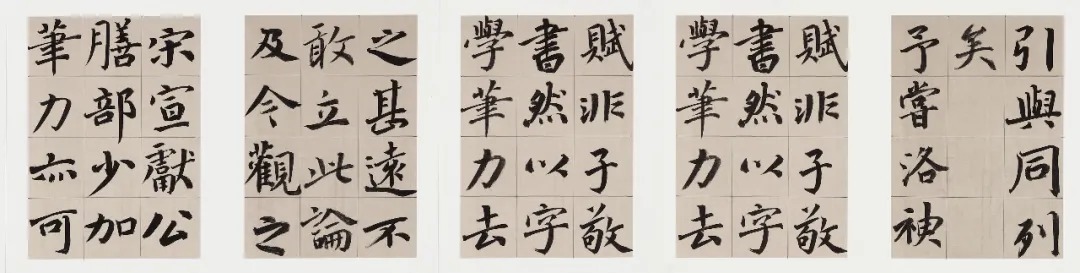 引與同列
矣
予嘗洛神
賦非子敬
書然以字
學筆力去
賦非子敬
書然以字
學筆力去
之甚遠不
敢立此論
及今觀之
宋宣獻公
膳部少加
筆力亦可